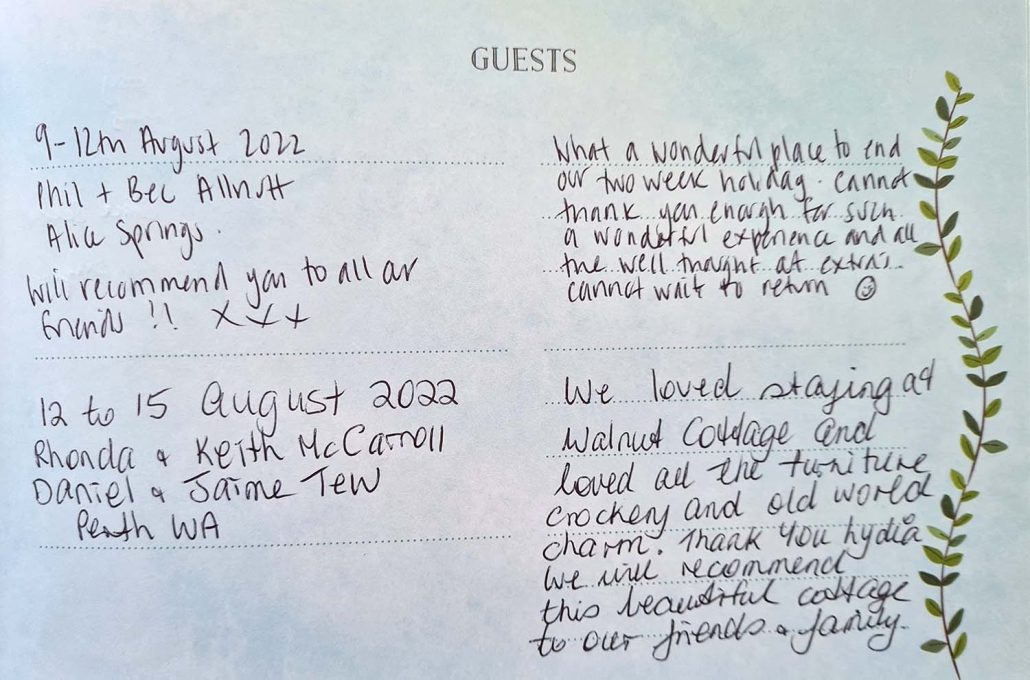 GUESTS
9-12th August 2022
Phil + Bec Allnutt
Alice Springs.
Will recommend you to all our
friends !! xxx
What a wonderful place to end
our two week holiday. Cannot
thank you enough for such
a wonderful experience and all
the well thought out extras.
Cannot wait to return ☺
12 to 15 August 2022
Rhonda & Keith McCarroll
Daniel & Jaime Tew
Perth WA
We loved staying at
Walnut Cottage and
loved all the furniture
crockery and old world
charm. Thank you
We will recommend
this beautiful cottage
to our friends & family.